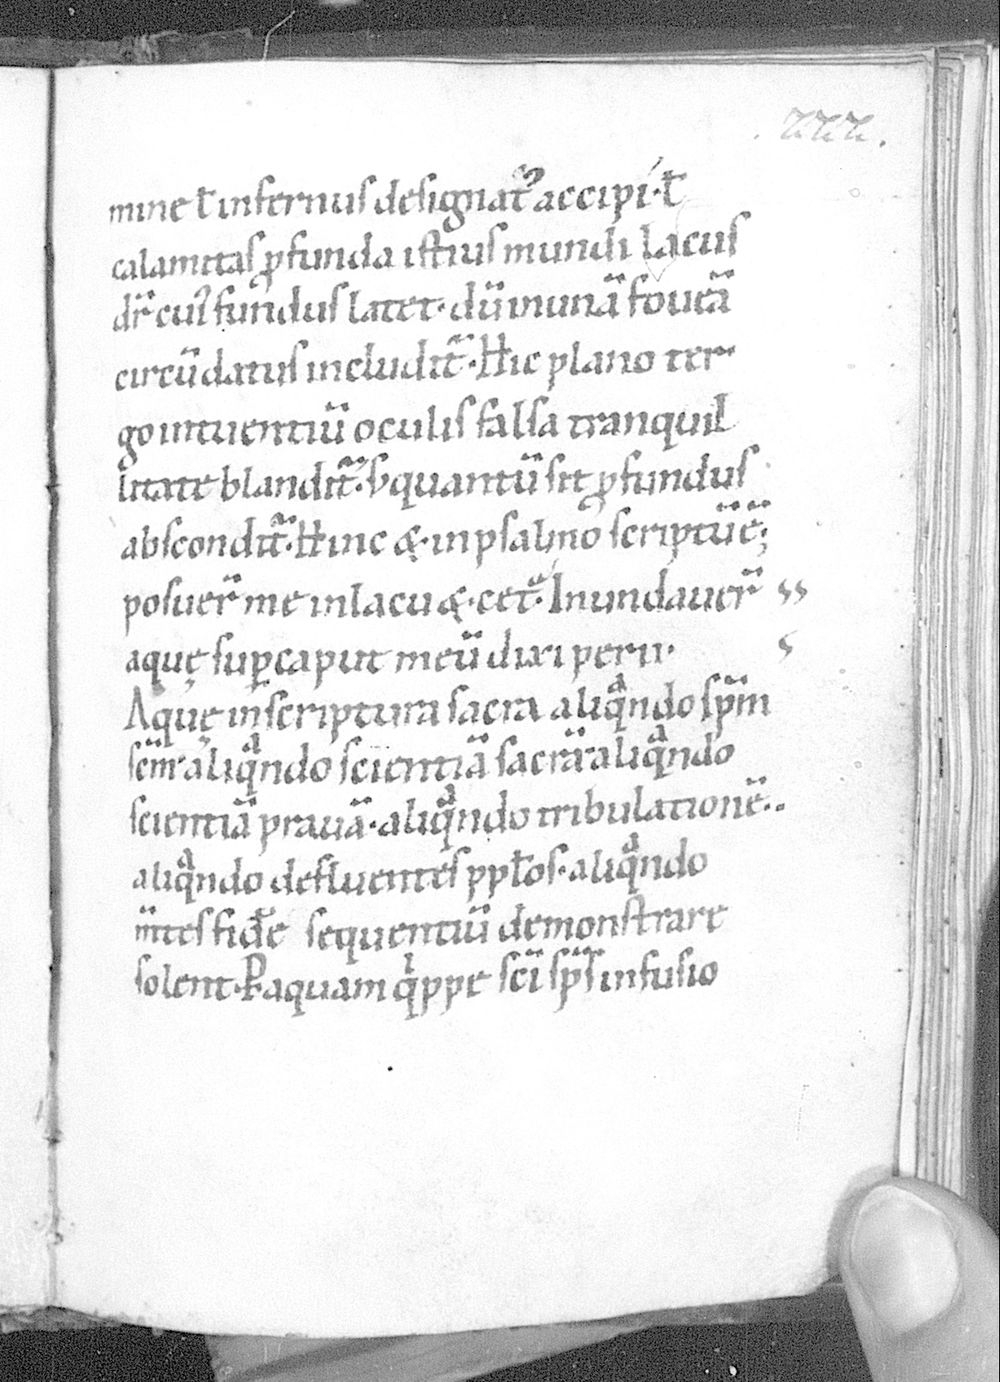 .xxx.
mine ł infernus designat᷑ accipi· ł
calamitas ꝓfunda istius mundi lacus
dr̄ cui᷒ fundus latet· dū in unā foueā
circūdatus includit᷑· Hic plano ter
go intuentiū oculis falsa tranquil
litate blandit᷑· s; quantū sit ꝓfundus
abscondit᷑· Hinc &· in psalmo scriptū ē;
posuer̄ me in lacu &· cet̄· Inundauer̄
aquę suꝑ caput meū dixi perii·
Aquę in scriptura sacra aliqᵃndo sp̄m
sc̄m· aliqᵃndo scientiā sacrā· aliqᵃndo
scientiā prauā· aliqᵃndo tribulationē··
aliqᵃndo defluentes ppl̄os· aliqᵃndo
m̄tes fidē sequentiū demonstrare
solent· P aquam qⁱppe sc̄i sp̄s infusio